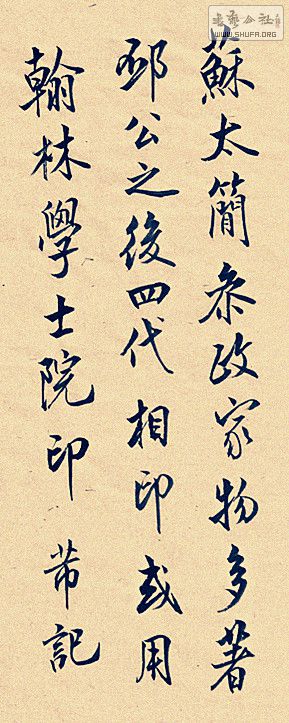 蘇太簡參政家物多著
邳公之後四代相印或用
翰林學士院印 芾記
书法公社
WWW.SHUFA.ORG